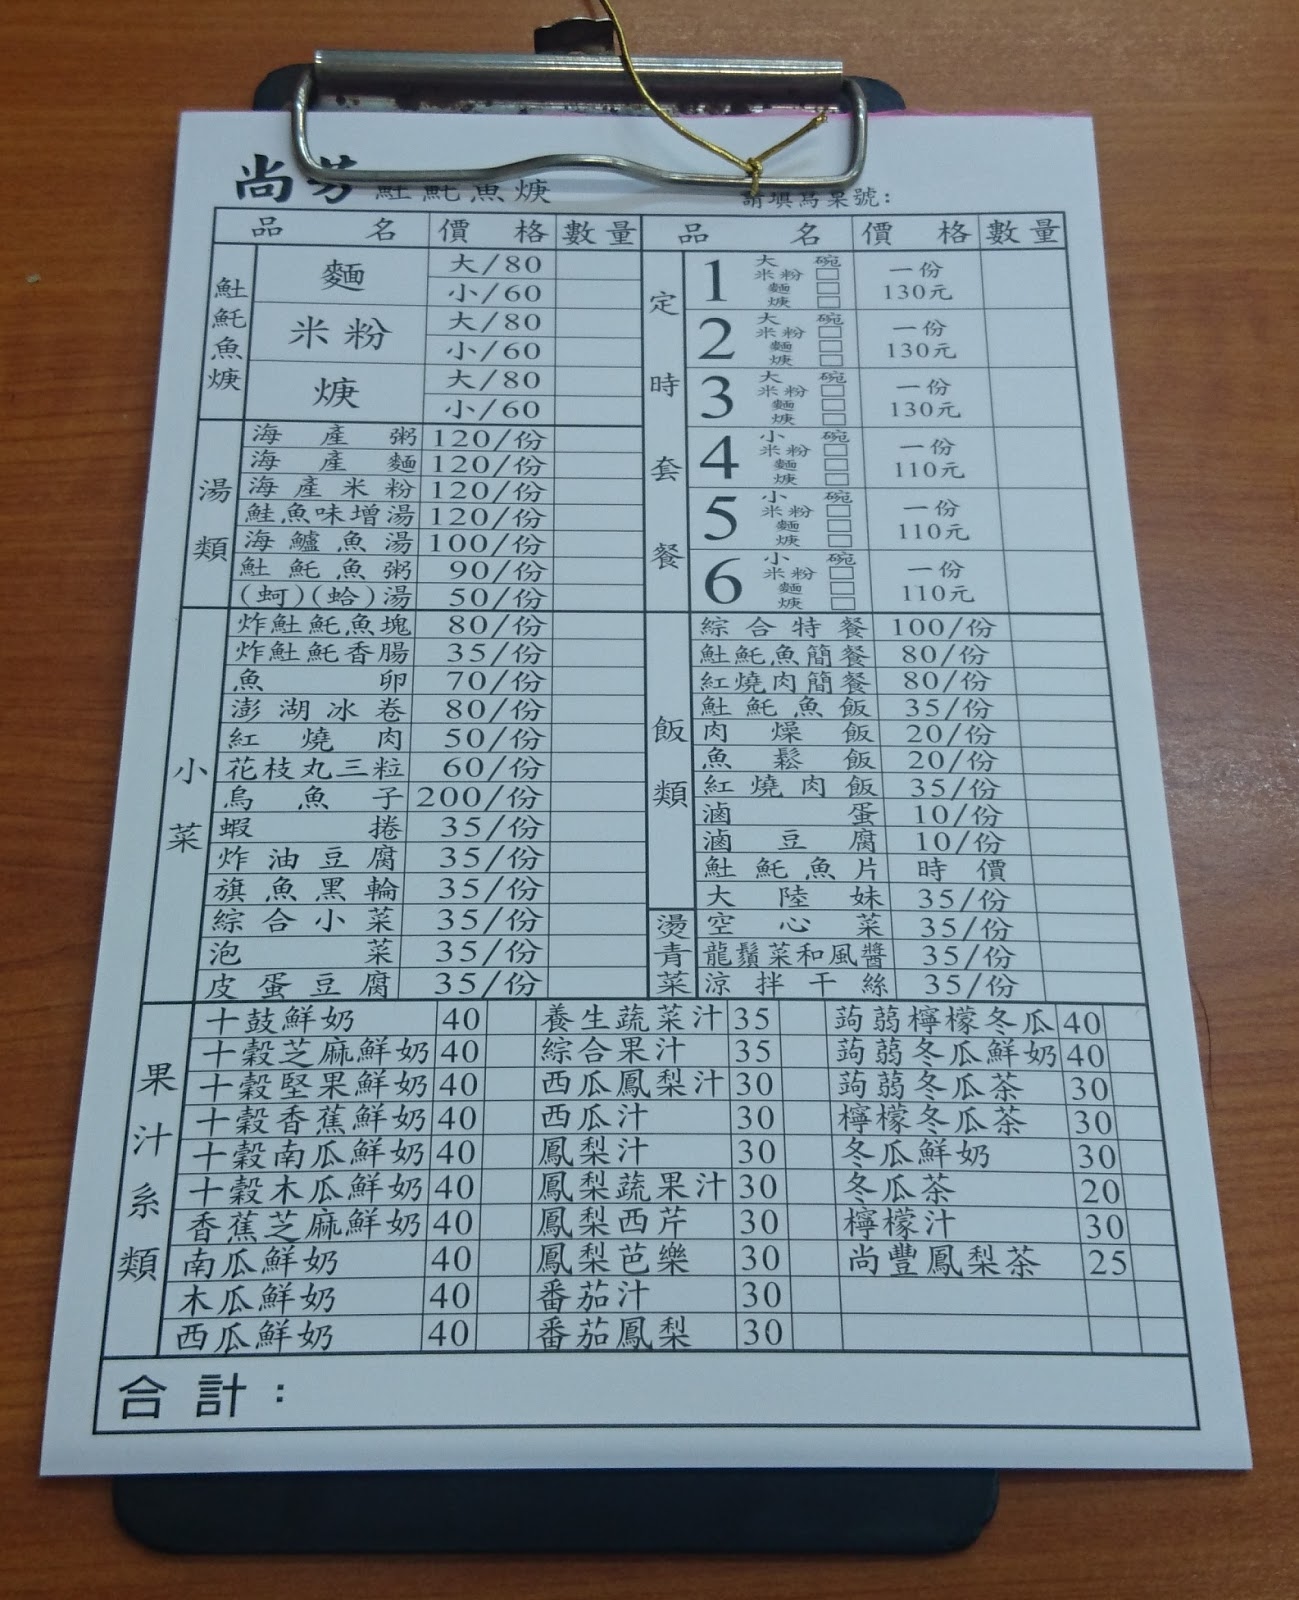 尚芳 𩵚魠魚焿
請填寫桌號:
品名 價格 數量 品名 價格 數量
𩵚魠魚焿
麵 大/80
小/60
米粉 大/80
小/60
焿 大/80
小/60
湯類
海產粥 120/份
海產麵 120/份
海產米粉 120/份
鮭魚味增湯 120/份
海鱸魚湯 100/份
𩵚魠魚粥 90/份
(蚵)(蛤)湯 50/份
小菜
炸𩵚魠魚塊 80/份
炸𩵚魠香腸 35/份
魚卵 70/份
澎湖冰卷 80/份
紅燒肉 50/份
花枝丸三粒 60/份
烏魚子 200/份
蝦捲 35/份
炸油豆腐 35/份
旗魚黑輪 35/份
綜合小菜 35/份
泡菜 35/份
皮蛋豆腐 35/份
定時套餐
1 大碗 米粉□ 麵□ 焿□ 一份 130元
2 大碗 米粉□ 麵□ 焿□ 一份 130元
3 大碗 米粉□ 麵□ 焿□ 一份 130元
4 小碗 米粉□ 麵□ 焿□ 一份 110元
5 小碗 米粉□ 麵□ 焿□ 一份 110元
6 小碗 米粉□ 麵□ 焿□ 一份 110元
飯類
綜合特餐 100/份
𩵚魠魚簡餐 80/份
紅燒肉簡餐 80/份
𩵚魠魚飯 35/份
肉燥飯 20/份
魚鬆飯 20/份
紅燒肉飯 35/份
滷蛋 10/份
滷豆腐 10/份
𩵚魠魚片 時價
大陸妹 35/份
燙青菜
空心菜 35/份
龍鬚菜和風醬 35/份
涼拌干絲 35/份
果汁系類
十鼓鮮奶 40 養生蔬菜汁 35 蒟蒻檸檬冬瓜 40
十穀芝麻鮮奶 40 綜合果汁 35 蒟蒻冬瓜鮮奶 40
十穀堅果鮮奶 40 西瓜鳳梨汁 30 蒟蒻冬瓜茶 30
十穀香蕉鮮奶 40 西瓜汁 30 檸檬冬瓜茶 30
十穀南瓜鮮奶 40 鳳梨汁 30 冬瓜鮮奶 30
十穀木瓜鮮奶 40 鳳梨蔬果汁 30 冬瓜茶 20
香蕉芝麻鮮奶 40 鳳梨西芹 30 檸檬汁 30
南瓜鮮奶 40 鳳梨芭樂 30 尚豐鳳梨茶 25
木瓜鮮奶 40 番茄汁 30
西瓜鮮奶 40 番茄鳳梨 30
合計: